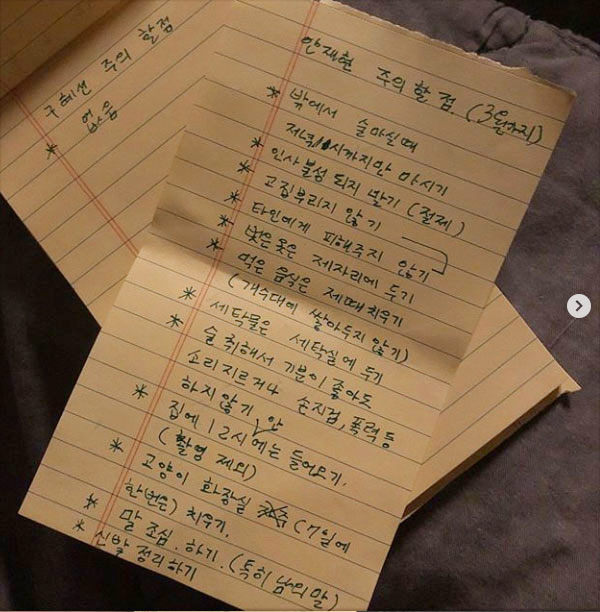 구혜선 주의 할점
* 없음
안재현 주의 할 점. (3월까지)
* 밖에서 술마실때
저녁11시까지만 마시기
* 인사불성 되지 말기 (절제)
* 고집부리지 않기
* 타인에게 피해주지 않기
* 벗은옷은 제자리에 두기
* 먹은 음식은 제때 치우기
(개수대에 쌓아두지 않기)
* 세탁물은 세탁실에 두기
* 술 취해서 기분이 좋아도
소리지르거나 손지검, 폭력 등
하지 않기
* 집에 12시 안에는 들어오기.
(촬영 제외)
* 고양이 화장실 (7일에
한번은) 치우기.
* 말 조심. 하기. (특히 남의 말)
* 신발 정리하기